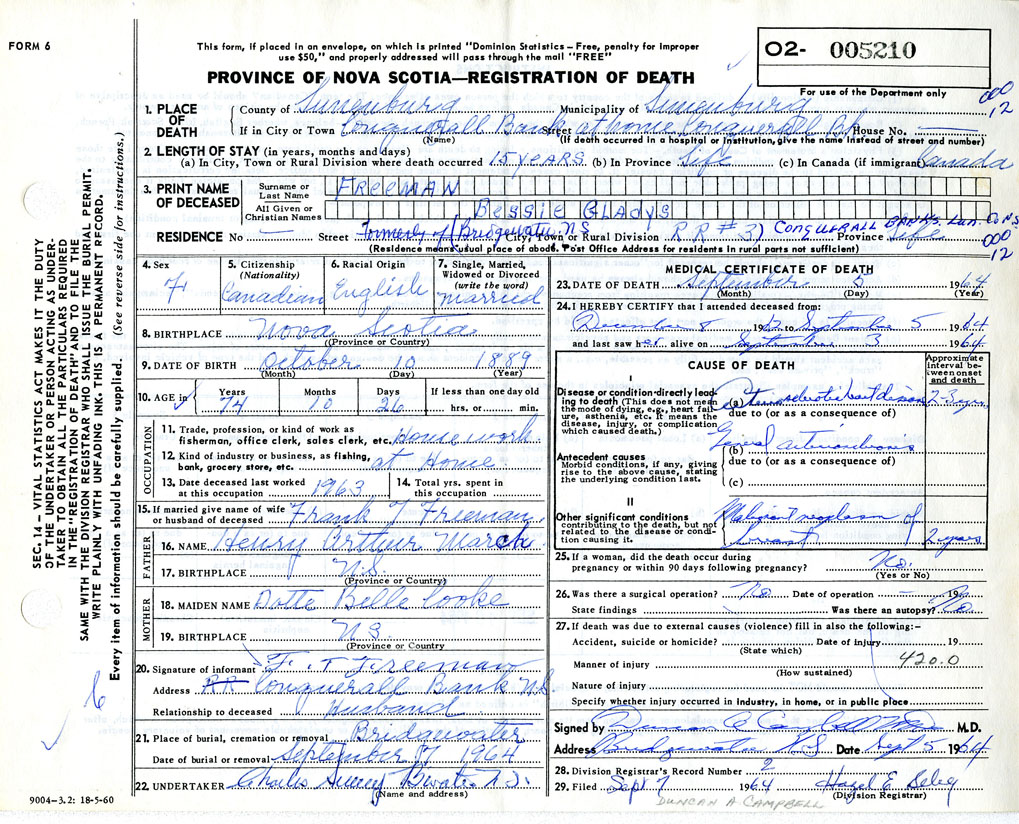 FORM 6
This form, if placed in an envelope, on which is printed "Dominion Statistics – Free, penalty for improper
use $50," and properly addressed will pass through the mail "FREE"
O2- 005210
For use of the Department only
PROVINCE OF NOVA SCOTIA—REGISTRATION OF DEATH
000
12
1. PLACE OF DEATH
County of Lunenburg Municipality of Lunenburg
If in City or Town Conquerall Bank Street at home Conquerall Bk House No. —
(Name) (If death occurred in a hospital or institution, give the name instead of street and number)
2. LENGTH OF STAY (in years, months and days)
(a) In City, Town or Rural Division where death occurred 15 years (b) In Province Life (c) In Canada (if immigrant) Canada
3. PRINT NAME OF DECEASED
Surname or Last Name FREEMAN
All Given or Christian Names BESSIE GLADYS
RESIDENCE No — Street Formerly of (Bridgewater NS City, Town or Rural Division RR #3) CONQUERALL BANKS LUN. CO NS Province Life
(Residence means usual place of abode. Post Office Address for residents in rural parts not sufficient)
000
12
4. Sex F
5. Citizenship (Nationality) Canadian
6. Racial Origin English
7. Single, Married, Widowed or Divorced (write the word) married
8. BIRTHPLACE Nova Scotia
(Province or Country)
9. DATE OF BIRTH October 10 1889
(Month) (Day) (Year)
10. AGE in Years 74 Months 10 Days 26 If less than one day old hrs. or min.
OCCUPATION
11. Trade, profession, or kind of work as fisherman, office clerk, sales clerk, etc. Homework
12. Kind of industry or business, as fishing, bank, grocery store, etc. at Home
13. Date deceased last worked at this occupation 1963
14. Total yrs. spent in this occupation
15. If married give name of wife or husband of deceased Frank T Freeman
FATHER
16. NAME Henry Arthur March
17. BIRTHPLACE N.S.
(Province or Country)
MOTHER
18. MAIDEN NAME Dotte Belle Cooke
19. BIRTHPLACE N.S.
(Province or Country
20. Signature of informant F. T Freeman
Address RR Conquerall Bank N.S.
Relationship to deceased Husband
21. Place of burial, cremation or removal Bridgewater
Date of burial or removal September 7 1964
22. UNDERTAKER Charles B'water N.S.
(Name and address)
MEDICAL CERTIFICATE OF DEATH
23. DATE OF DEATH September 5 1964
(Month) (Day) (Year)
24. I HEREBY CERTIFY that I attended deceased from:
December 8 19 to September 5 1964
and last saw her alive on September 3 1964
CAUSE OF DEATH
Approximate interval between onset and death
I
Disease or condition directly leading to death (This does not mean the mode of dying, e.g., heart failure, asthenia, etc. It means the disease, injury, or complication which caused death.)
(a) Arteriosclerotic heart disease 2-3 yrs.
due to (or as a consequence of)
Antecedent causes
Morbid conditions, if any, giving rise to the above cause, stating the underlying condition last.
(b) General arteriosclerosis
due to (or as a consequence of)
(c)
II
Other significant conditions
contributing to the death, but not related to the disease or condition causing it.
Malignant neoplasm of
breast 2 years
25. If a woman, did the death occur during pregnancy or within 90 days following pregnancy? No.
(Yes or No)
26. Was there a surgical operation? No Date of operation — 19
State findings Was there an autopsy? No
27. If death was due to external causes (violence) fill in also the following:–
Accident, suicide or homicide? Date of injury 19
(State which)
Manner of injury 420.0
(How sustained)
Nature of injury
Specify whether injury occurred in industry, in home, or in public place
Signed by Duncan A Campbell M.D.
Address Bridgewater N.S Date Sept 5 1964
28. Division Registrar's Record Number 2
29. Filed Sept 7 1964 Hazel E
(Division Registrar)
DUNCAN A CAMPBELL
9004–3.2: 18-5-60
SEC. 14 – VITAL STATISTICS ACT MAKES IT THE DUTY
OF THE UNDERTAKER OR PERSON ACTING AS UNDER-
TAKER TO OBTAIN ALL THE PARTICULARS REQUIRED
IN THE "REGISTRATION OF DEATH" AND TO FILE THE
SAME WITH THE DIVISION REGISTRAR WHO SHALL ISSUE THE BURIAL PERMIT.
WRITE PLAINLY WITH UNFADING INK. THIS IS A PERMANENT RECORD.
Every item of information should be carefully supplied. (See reverse side for instructions.)
6